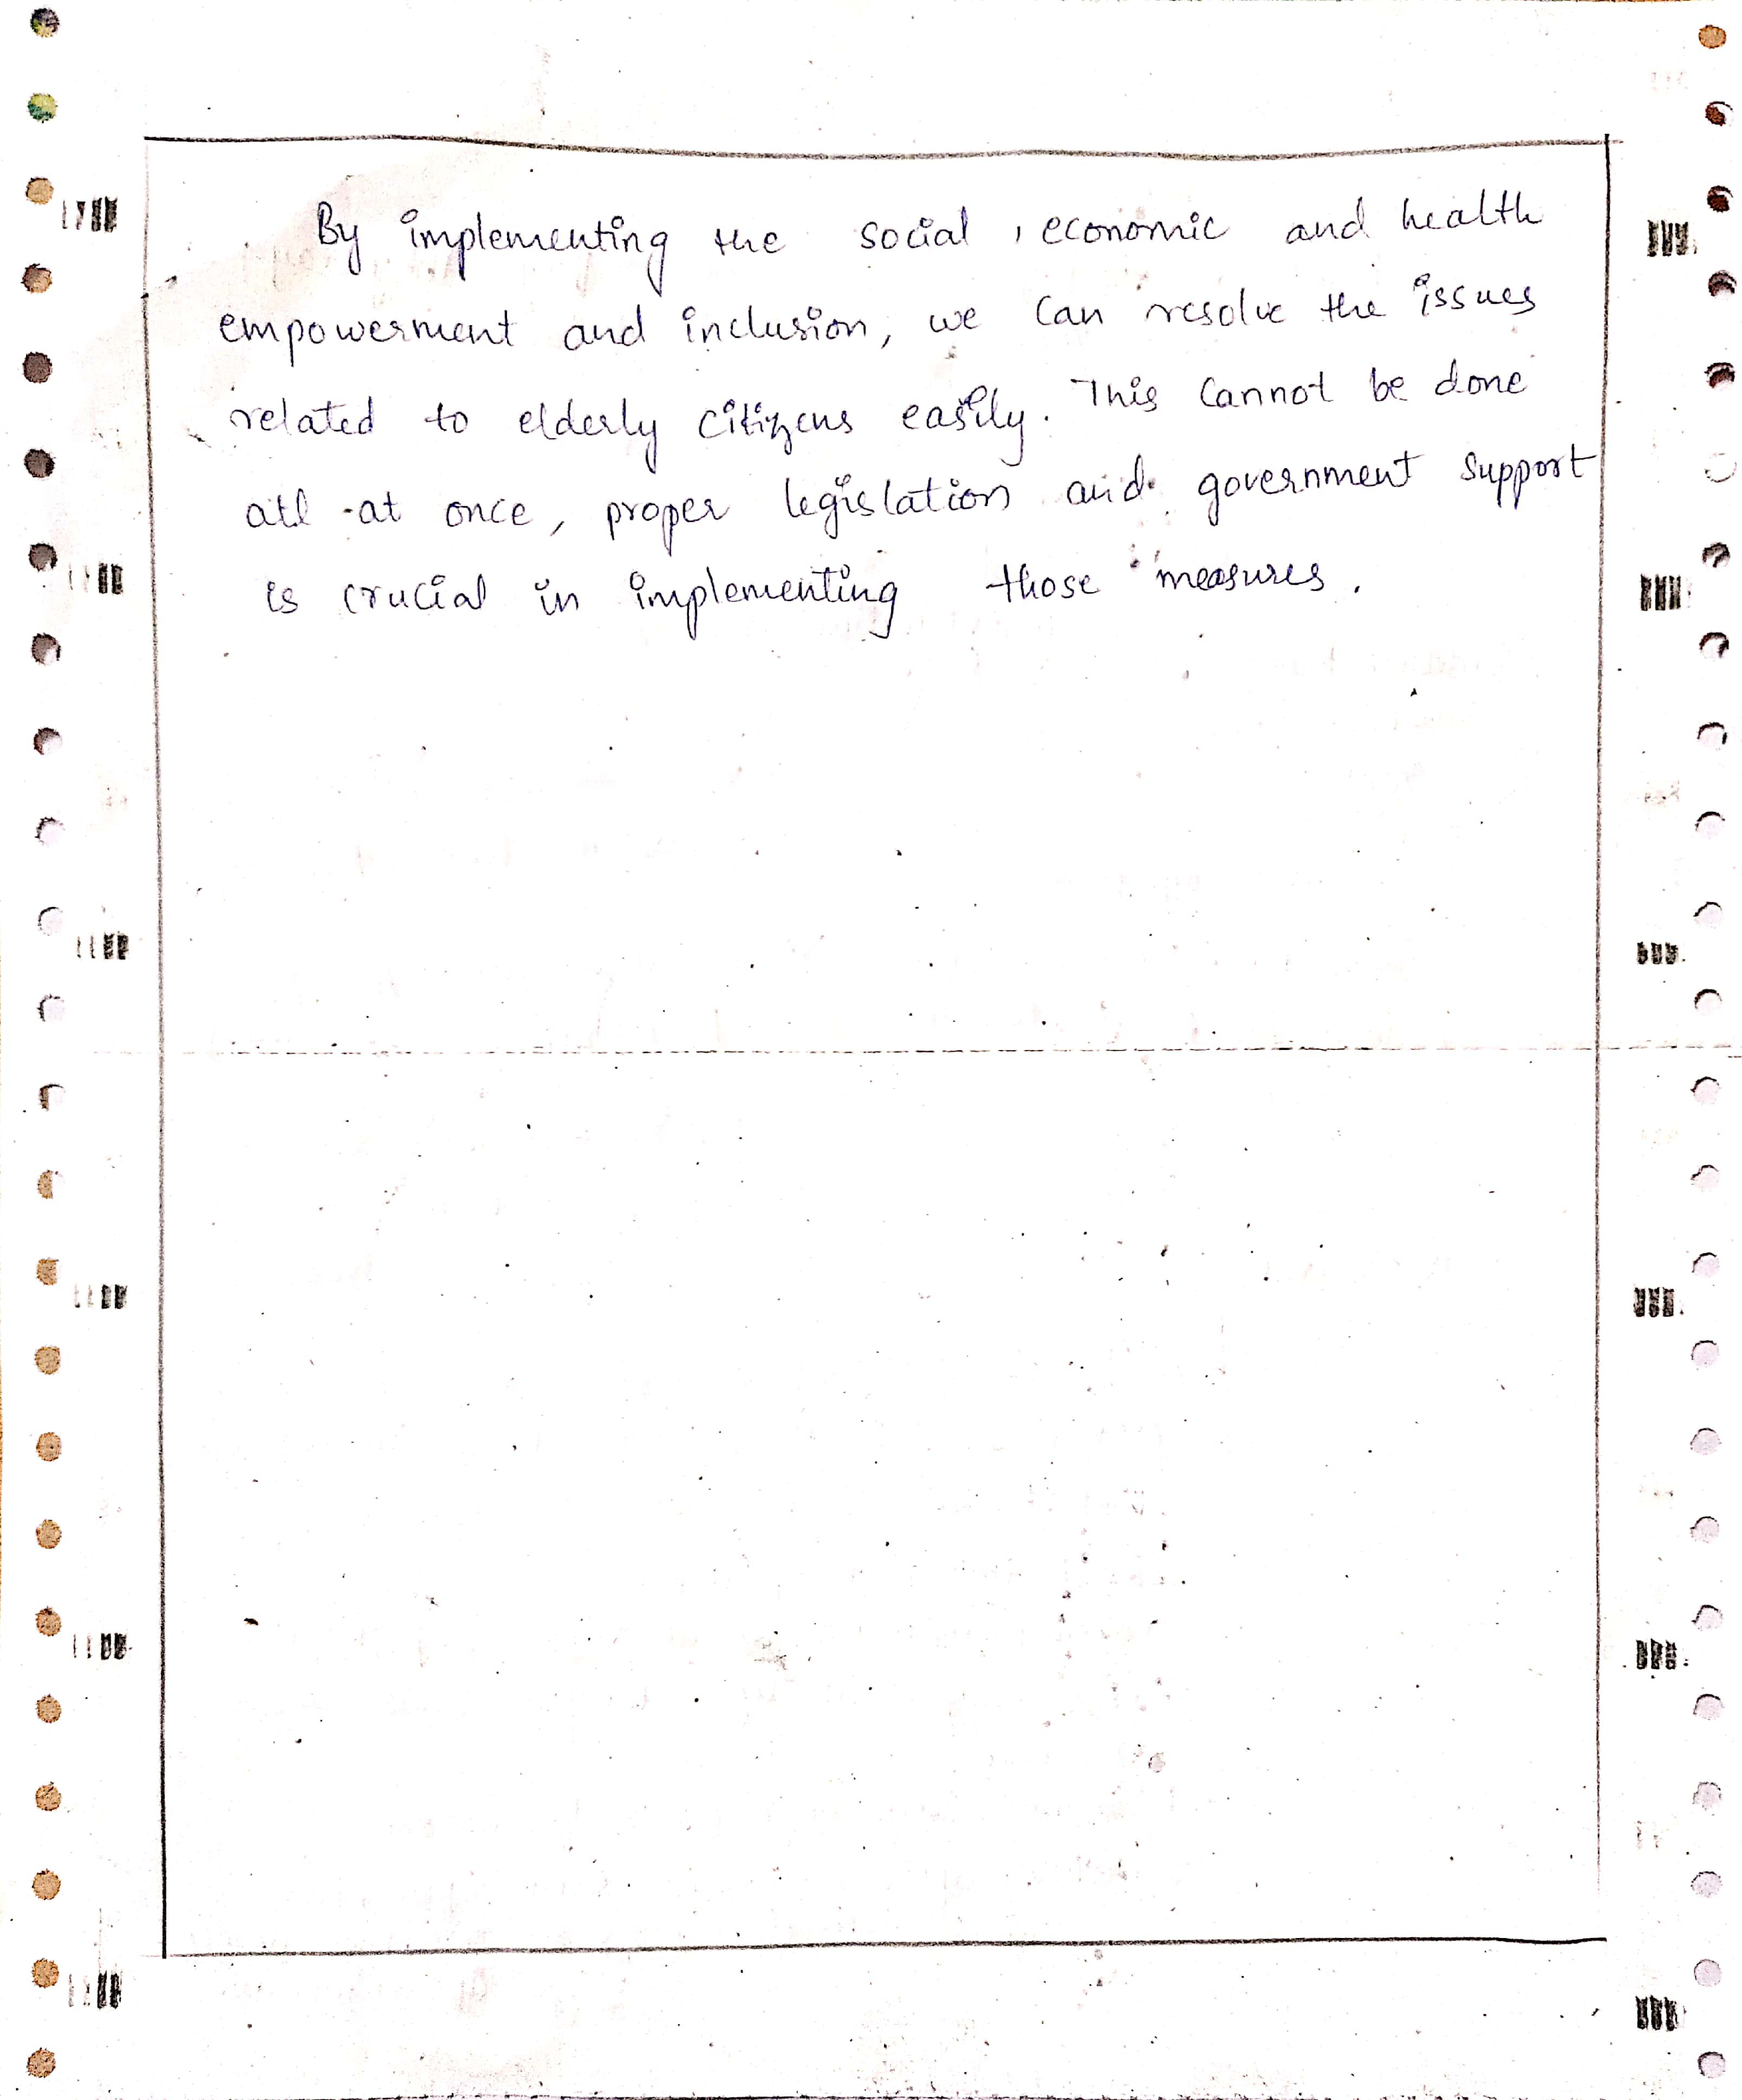 By implementing the social, economic and health
empowerment and inclusion, we can resolve the issues
related to elderly citizens easily. This cannot be done
all at once, proper legislation and government support
is crucial in implementing those measures.